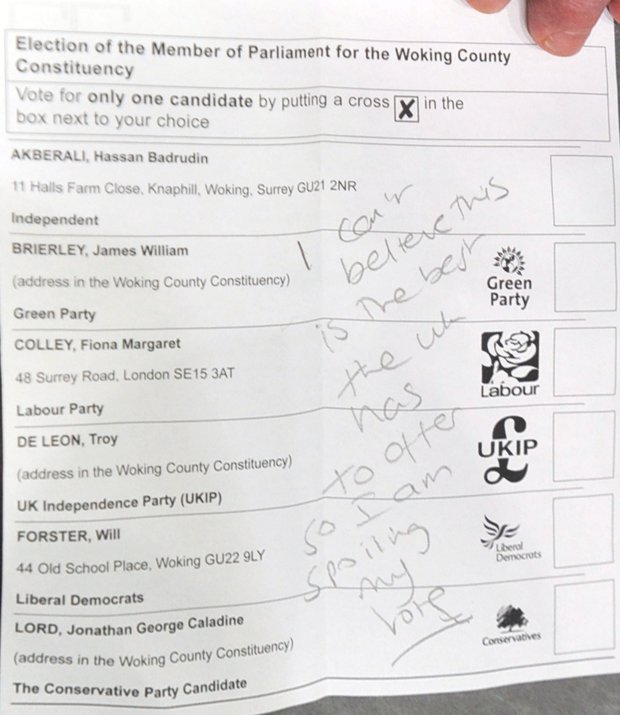 Election of the Member of Parliament for the Woking County
Constituency
Vote for only one candidate by putting a cross X in the
box next to your choice
AKBERALI, Hassan Badrudin
11 Halls Farm Close, Knaphill, Woking, Surrey GU21 2NR
Independent
BRIERLEY, James William
(address in the Woking County Constituency)
Green Party
Green
Party
COLLEY, Fiona Margaret
48 Surrey Road, London SE15 3AT
Labour Party
Labour
DE LEON, Troy
(address in the Woking County Constituency)
UK Independence Party (UKIP)
UKIP
FORSTER, Will
44 Old School Place, Woking GU22 9LY
Liberal Democrats
Liberal
Democrats
LORD, Jonathan George Caladine
(address in the Woking County Constituency)
The Conservative Party Candidate
Conservatives
I can't
believe this
is the best
the uk
has
to offer
so I am
spoiling
my
vote